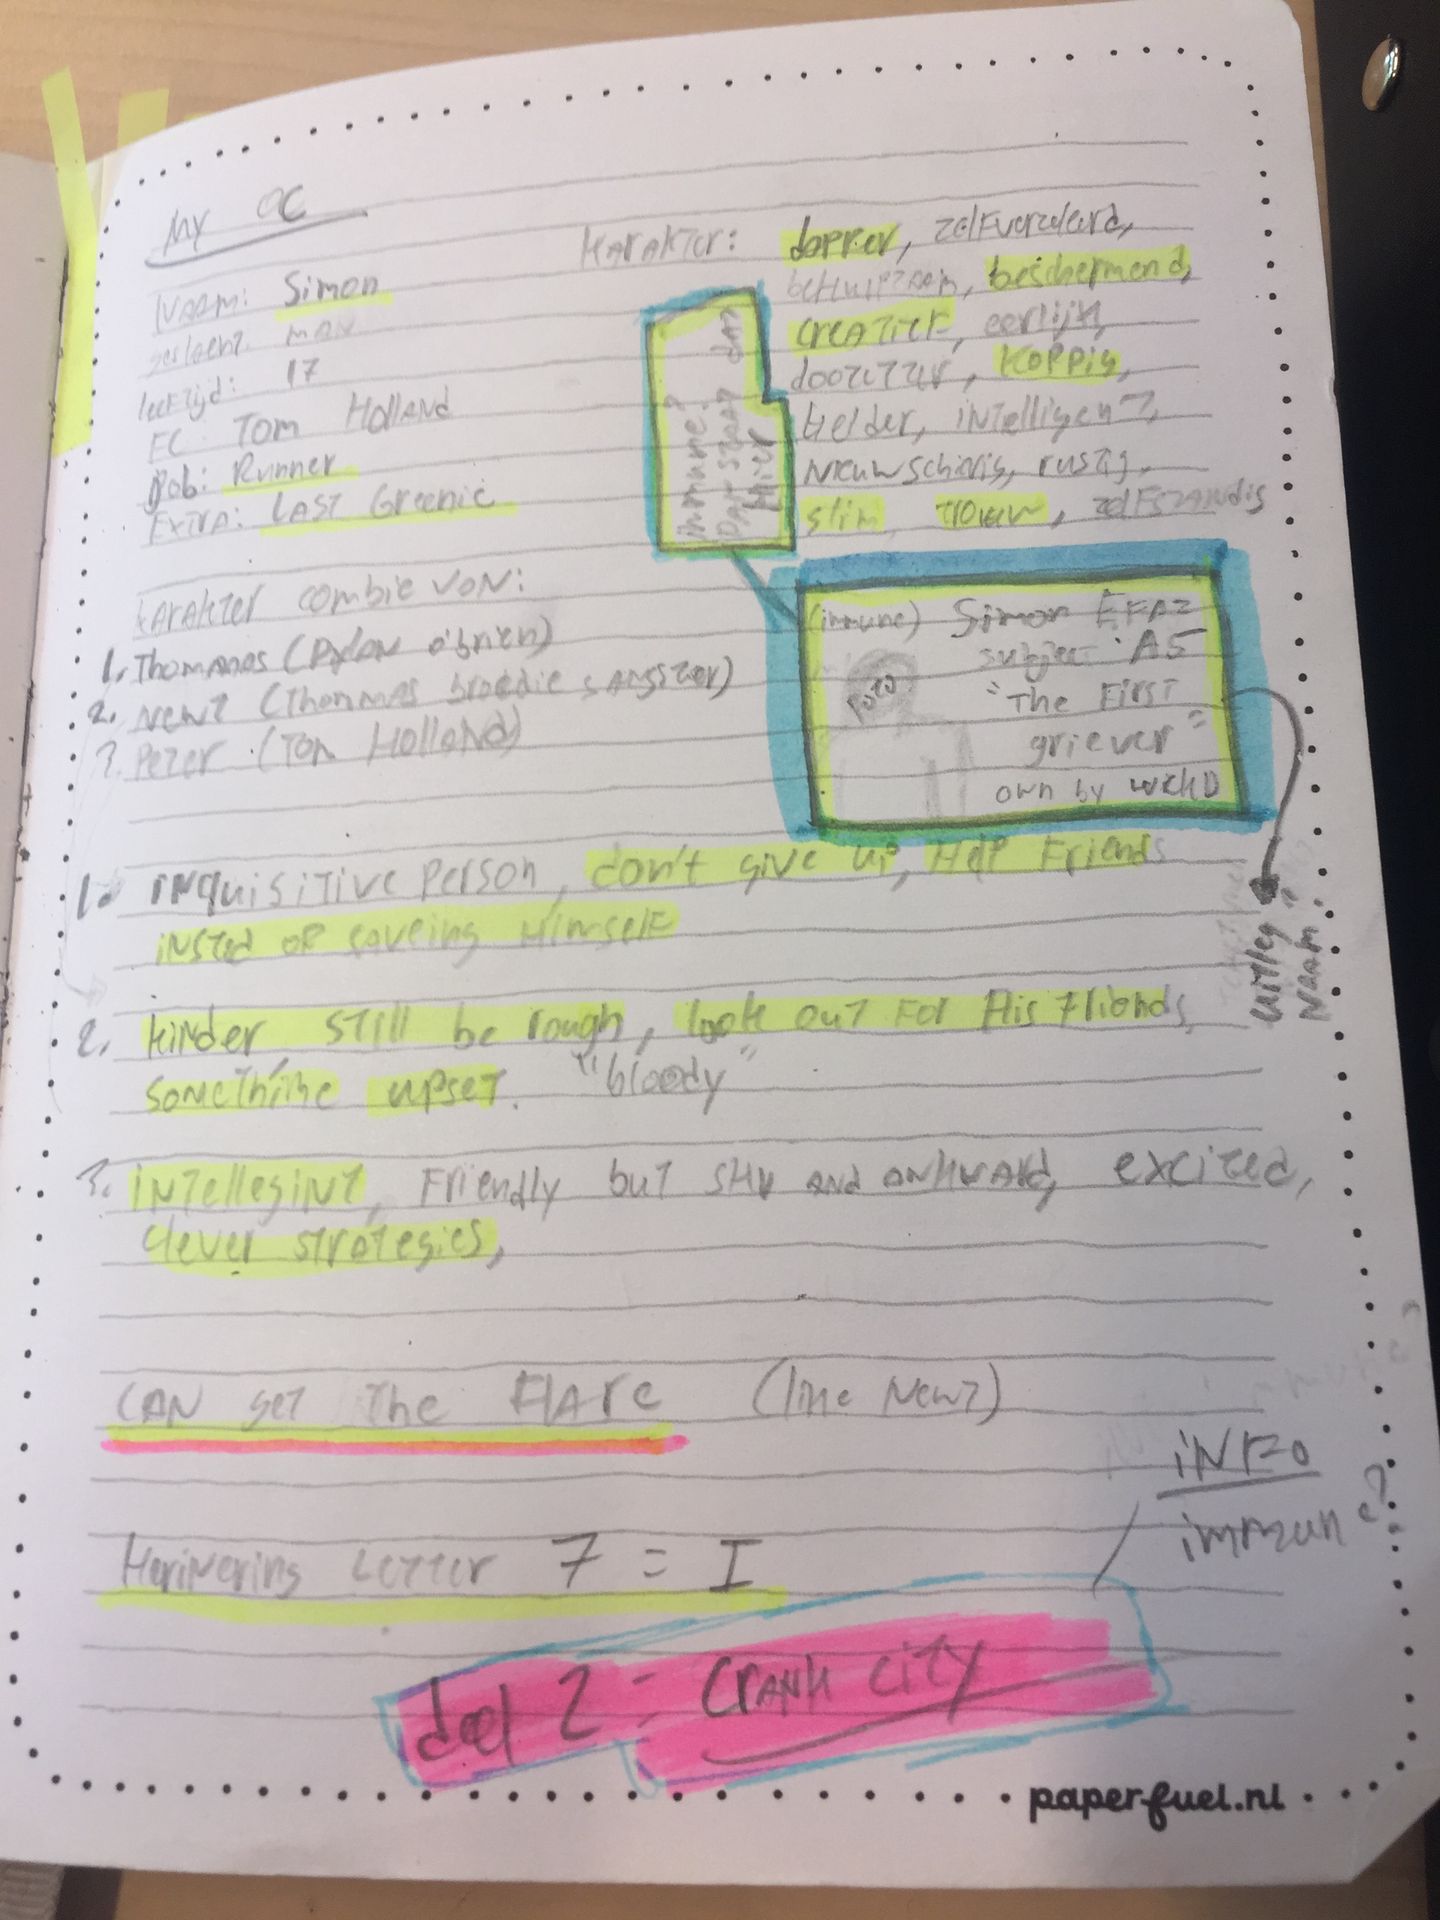 My OC
Naam: Simon
geslacht: man
leeftijd: 17
FC: Tom Holland
Job: Runner
Extra: Last Greenie
Karakter: dapper, zelfverzekerd,
behulpzaam, beschermend,
creatief, eerlijk,
doorzetter, koppig,
helder, intelligent,
nieuwschierig, rustig,
slim, trouw, zelfstandig
immune?
Dat staat dat
hier
Karakter combie von:
1. Thomanas (Dylan o'brien)
2. Newt (Thommas broedie sangster)
3. Peter (Tom Holland)
(immune) Simon
subject: A5
Foto
"The First
griever"
own by WCKD
uitleg
Naam:
1. inquisitive person, don't give up, Help Friends
insted of saveing Himself
2. kinder still be rough, look out for His Friends,
something upset. "bloody"
3. intellegint, Friendly but shy and awkward, excited,
clever strategies,
CAN get The Flare (like Newt)
Herinering Letter 7 = I
INFO
immun?
deel 2 = Crank City
paperfuel.nl